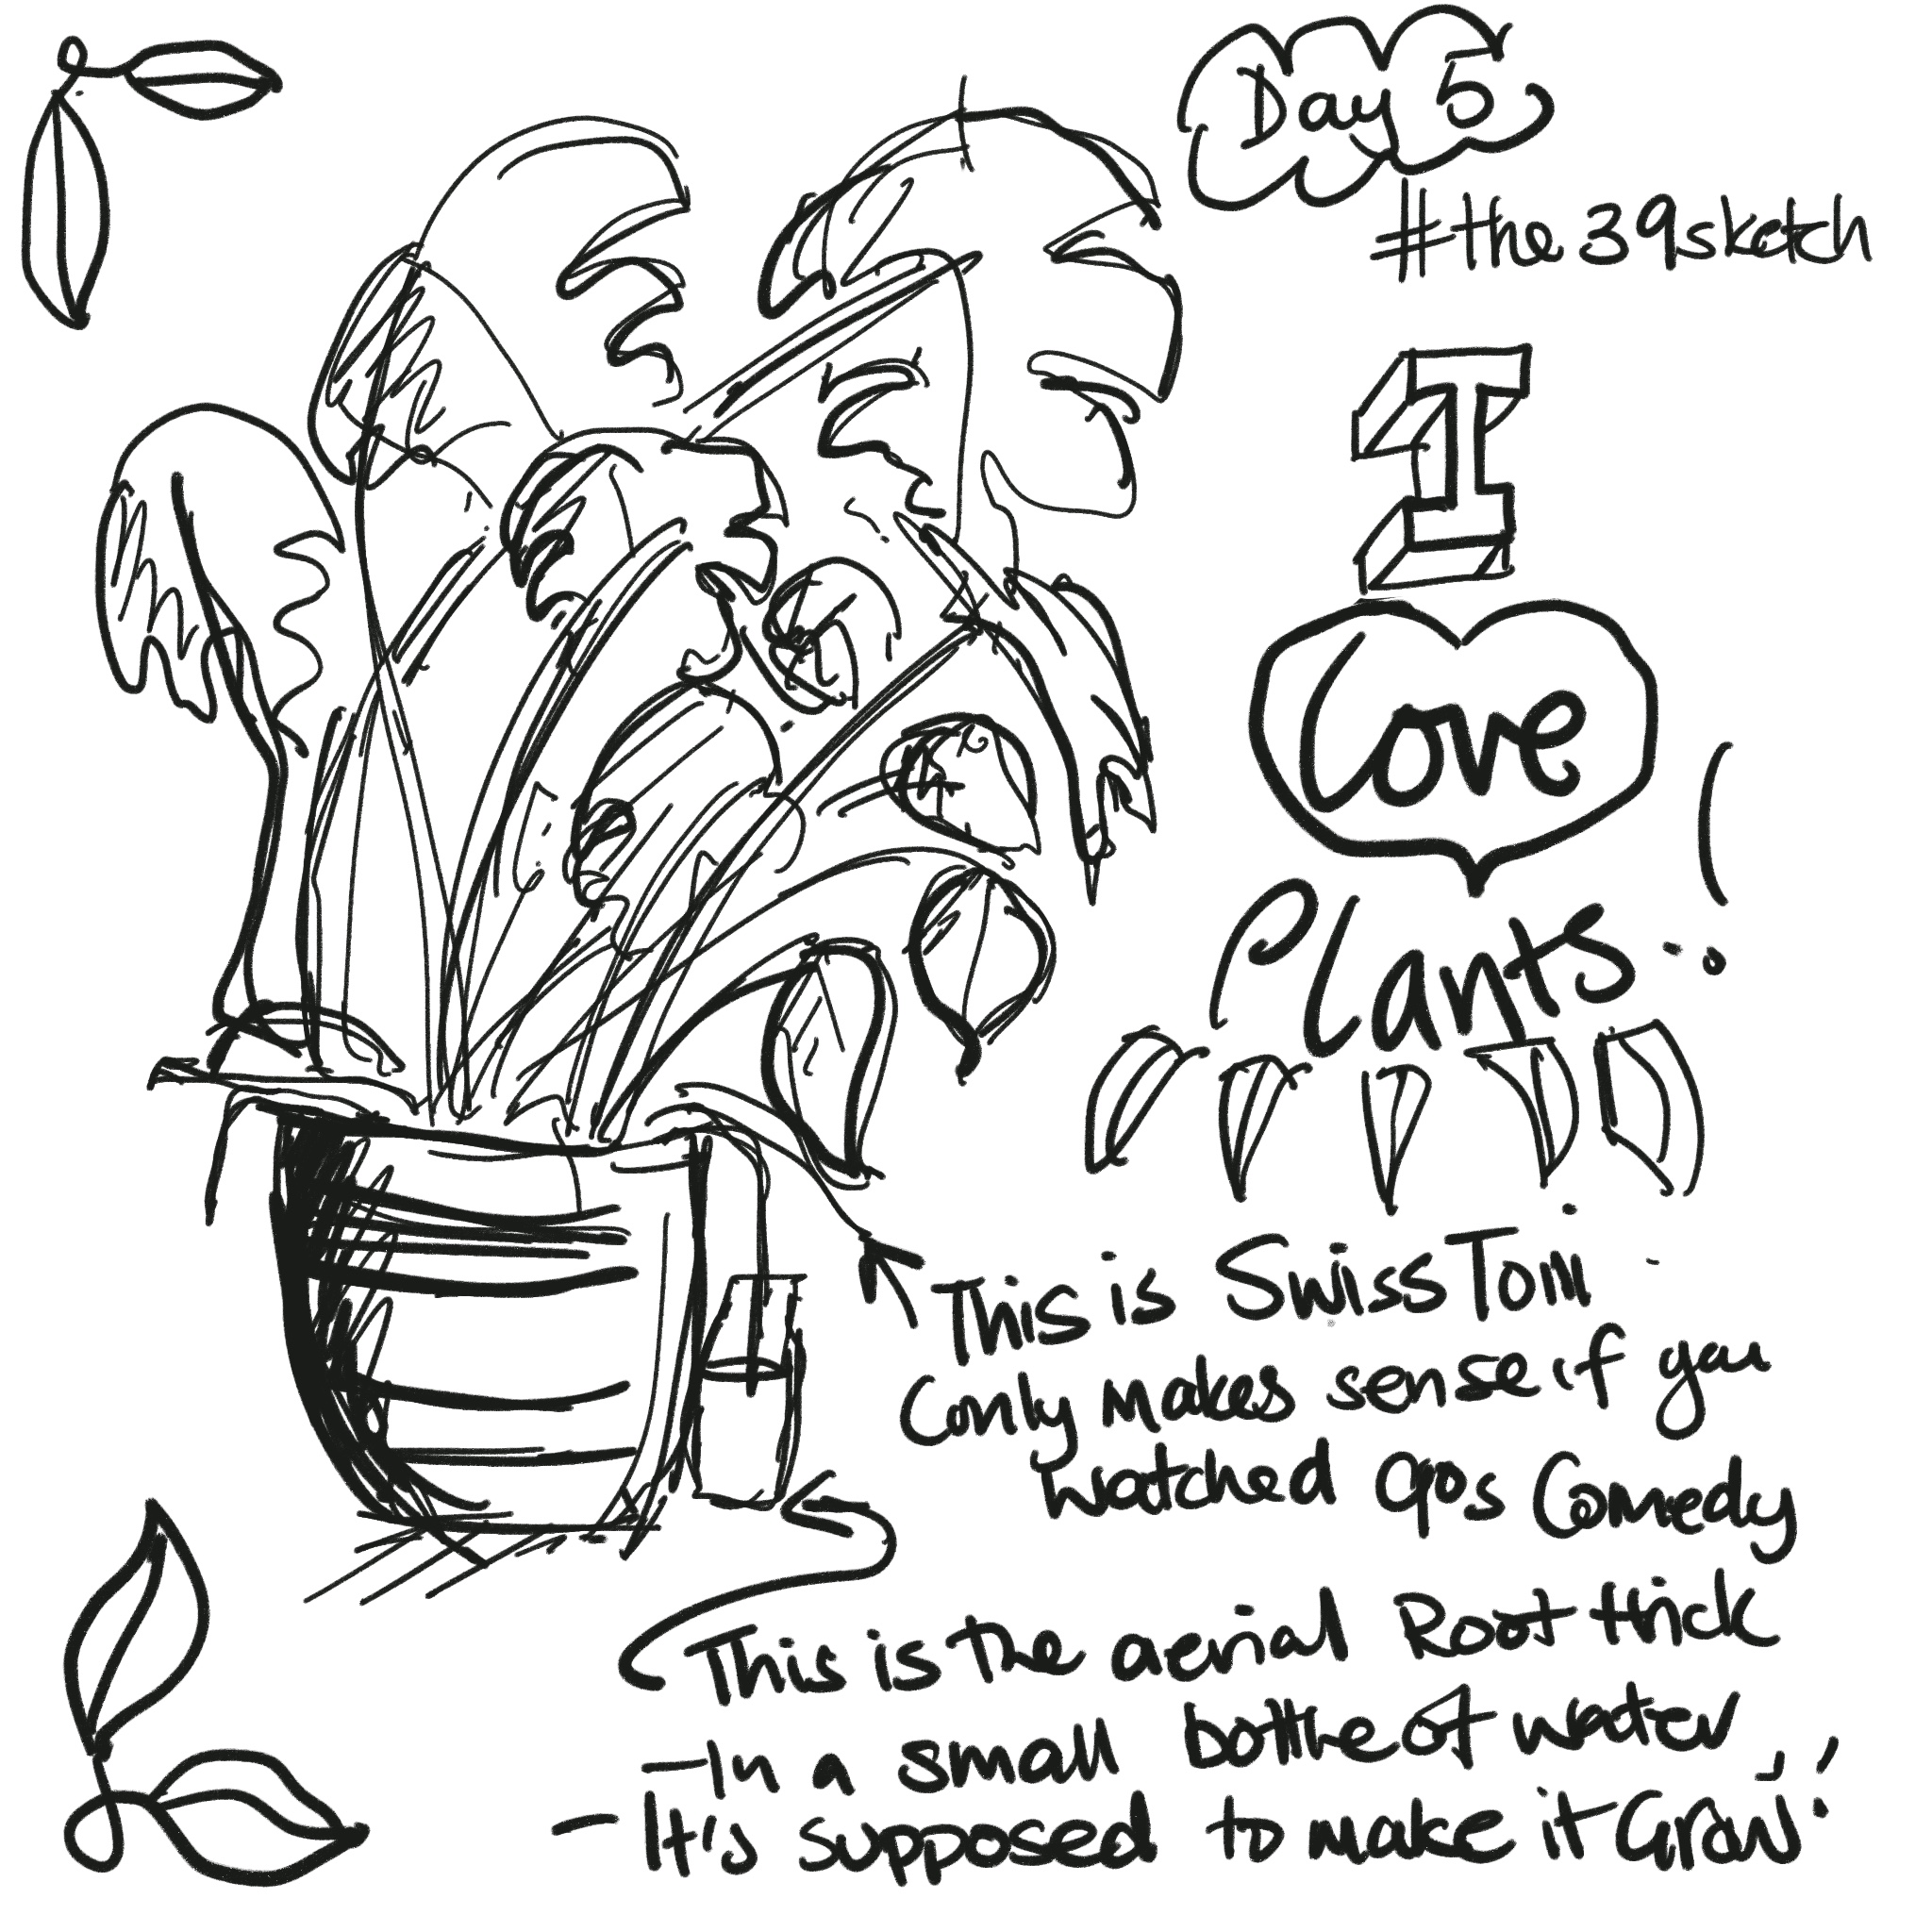 Day 5
#the39sketch
I
Love
Plants!
This is Swiss Toni
(only makes sense if you
watched 90s Comedy
This is the aerial Root trick
- In a small bottle of water
- It's supposed to make it Grow!